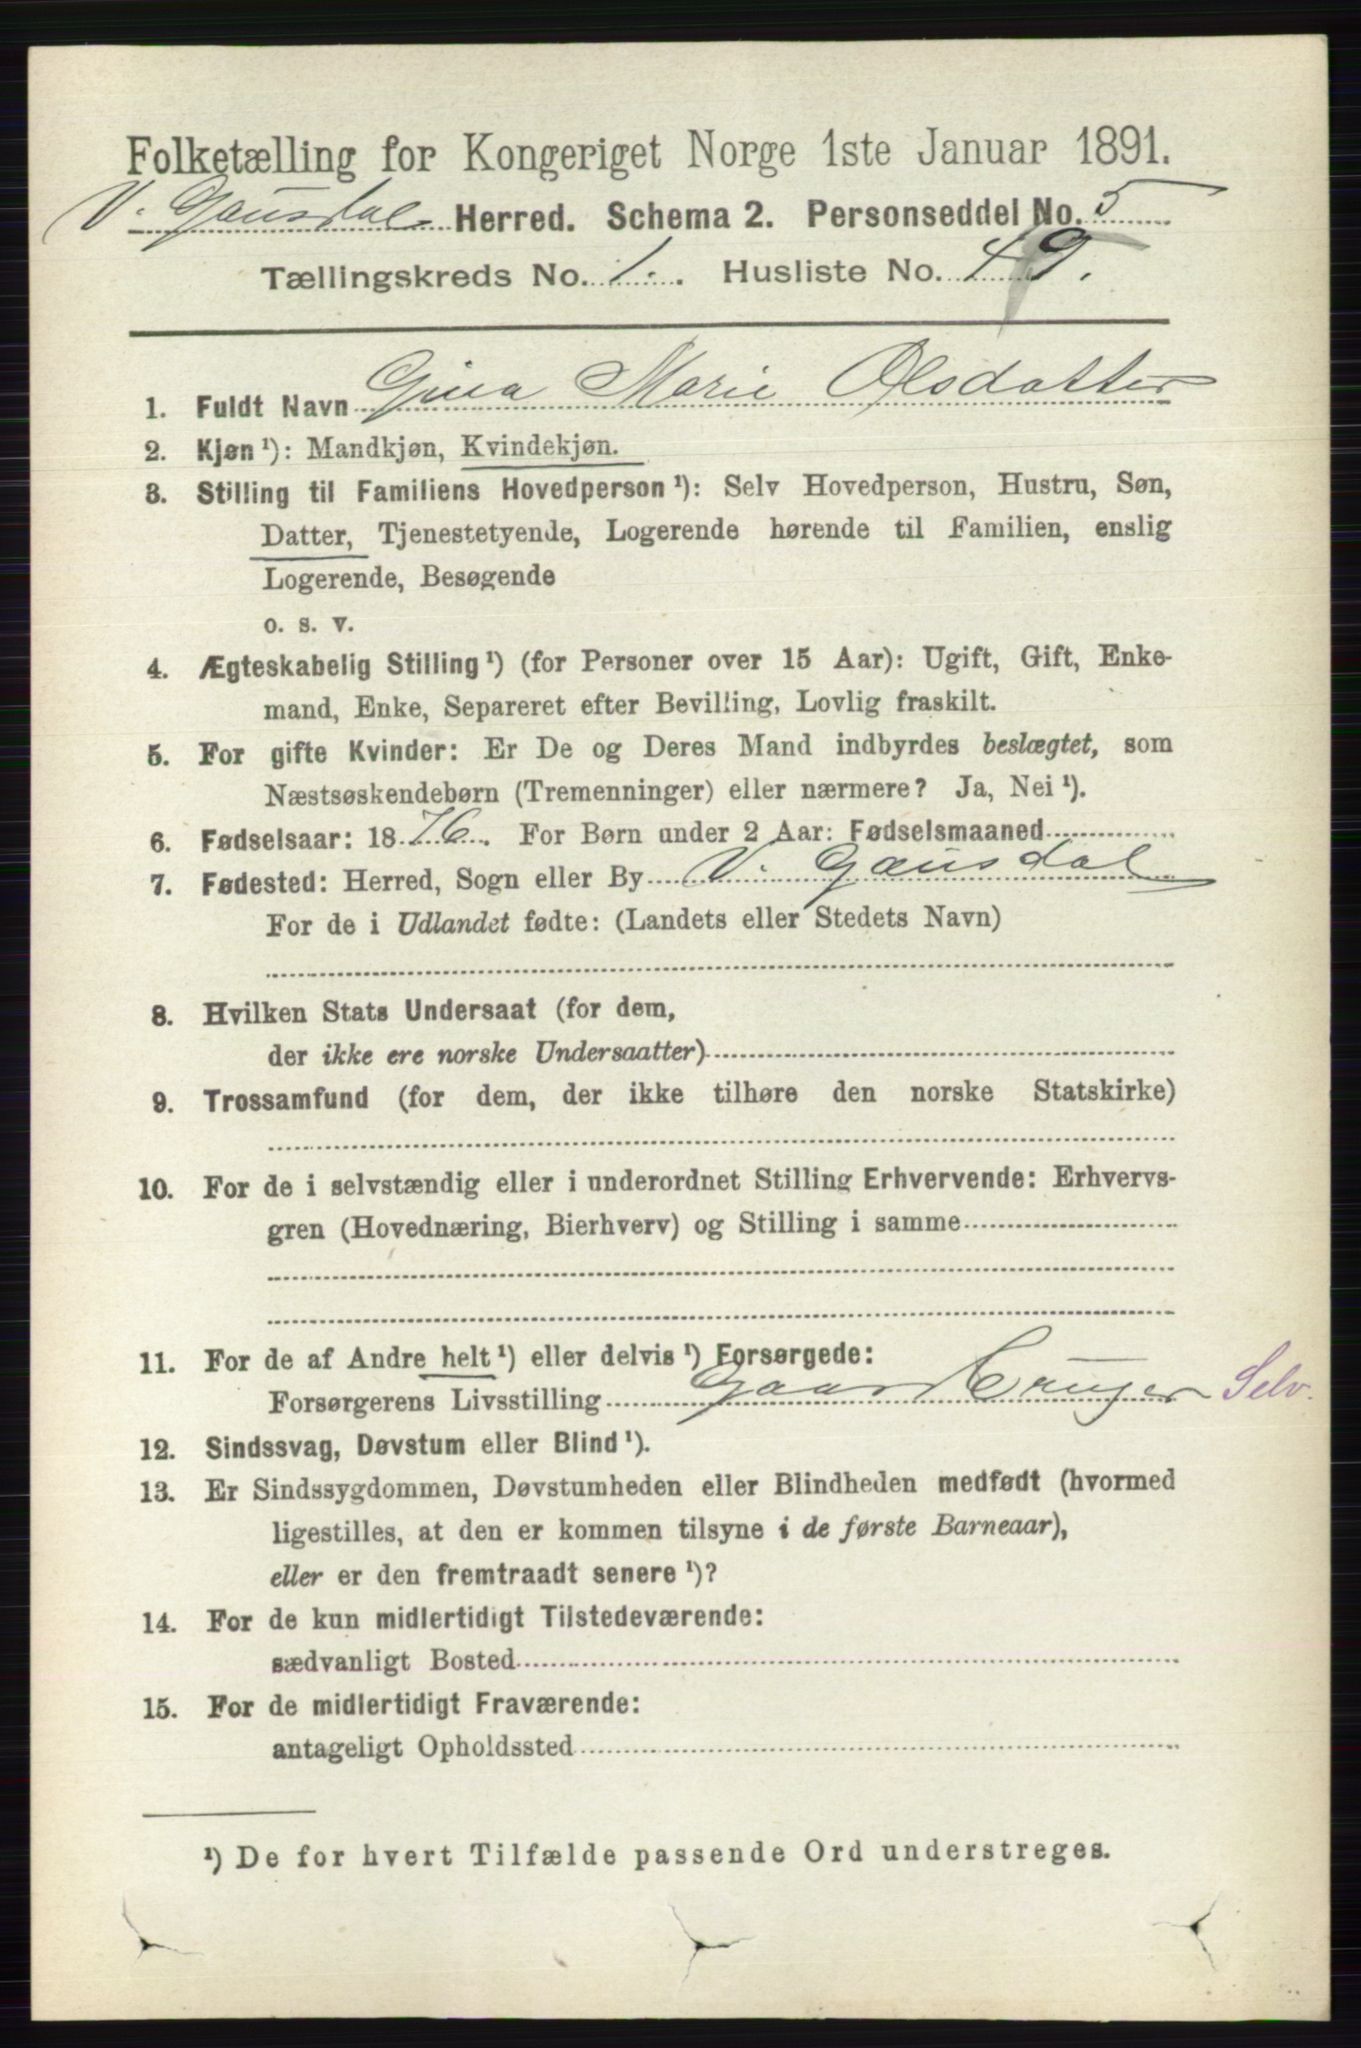 Folketælling for Kongeriget Norge 1ste Januar 1891.
V. Gausdal Herred. Schema 2. Personseddel No. 5
Tællingskreds No. 1. Husliste No. 49.
1. Fuldt Navn Gina Marie Olsdatter
2. Kjøn ¹): Mandkjøn, Kvindekjøn.
3. Stilling til Familiens Hovedperson ¹): Selv Hovedperson, Hustru, Søn,
Datter, Tjenestetyende, Logerende hørende til Familien, enslig
Logerende, Besøgende
o. s. v.
4. Ægteskabelig Stilling ¹) (for Personer over 15 Aar): Ugift, Gift, Enke-
mand, Enke, Separeret efter Bevilling, Lovlig fraskilt.
5. For gifte Kvinder: Er De og Deres Mand indbyrdes beslægtet, som
Næstsøskendebørn (Tremenninger) eller nærmere? Ja, Nei ¹).
6. Fødselsaar: 1876. For Børn under 2 Aar: Fødselsmaaned
7. Fødested: Herred, Sogn eller By V. Gausdal
For de i Udlandet fødte: (Landets eller Stedets Navn)
8. Hvilken Stats Undersaat (for dem,
der ikke ere norske Undersaatter)
9. Trossamfund (for dem, der ikke tilhøre den norske Statskirke)
10. For de i selvstændig eller i underordnet Stilling Erhvervende: Erhvervs-
gren (Hovednæring, Bierhverv) og Stilling i samme
11. For de af Andre helt ¹) eller delvis ¹) Forsørgede:
Forsørgerens Livsstilling Gaardbruger Selv.
12. Sindssvag, Døvstum eller Blind ¹).
13. Er Sindssygdommen, Døvstumheden eller Blindheden medfødt (hvormed
ligestilles, at den er kommen tilsyne i de første Barneaar),
eller er den fremtraadt senere ¹)?
14. For de kun midlertidigt Tilstedeværende:
sædvanligt Bosted
15. For de midlertidigt Fraværende:
antageligt Opholdssted
¹) De for hvert Tilfælde passende Ord understreges.